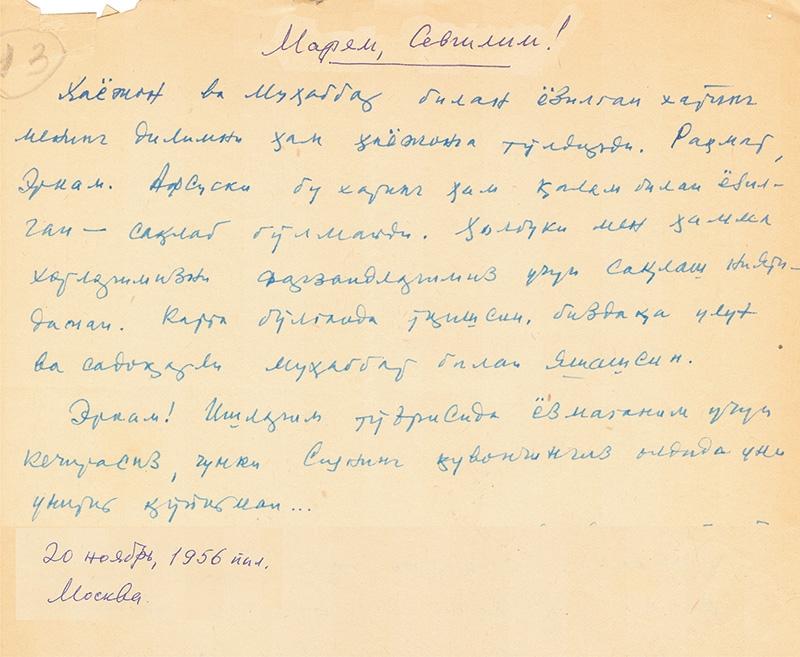 13
Марям, Севгилим!
Ҳаёжон ва Муҳаббат билан ёзилган хатинг
менинг дилимни ҳам ҳаёжонга тўлдирди. Раҳмат,
Эркам. Афсуски бу хатинг ҳам қалам билан ёзил-
ган — сақлаб бўлмайди. Ҳолбуки мен ҳамма
хатларимизни фарзандларимиз учун сақлаш нияти-
даман. Катта бўлганда ўқишсин, биздақа улуғ
ва садоқатли муҳаббат билан яшашсин.
Эркам! Ишларим тўғрисида ёзмаганим учун
кечирасиз, чунки Сизнинг қувончингиз олдида уни
унутиб қўйибман...
20 ноябрь, 1956 йил.
Москва.